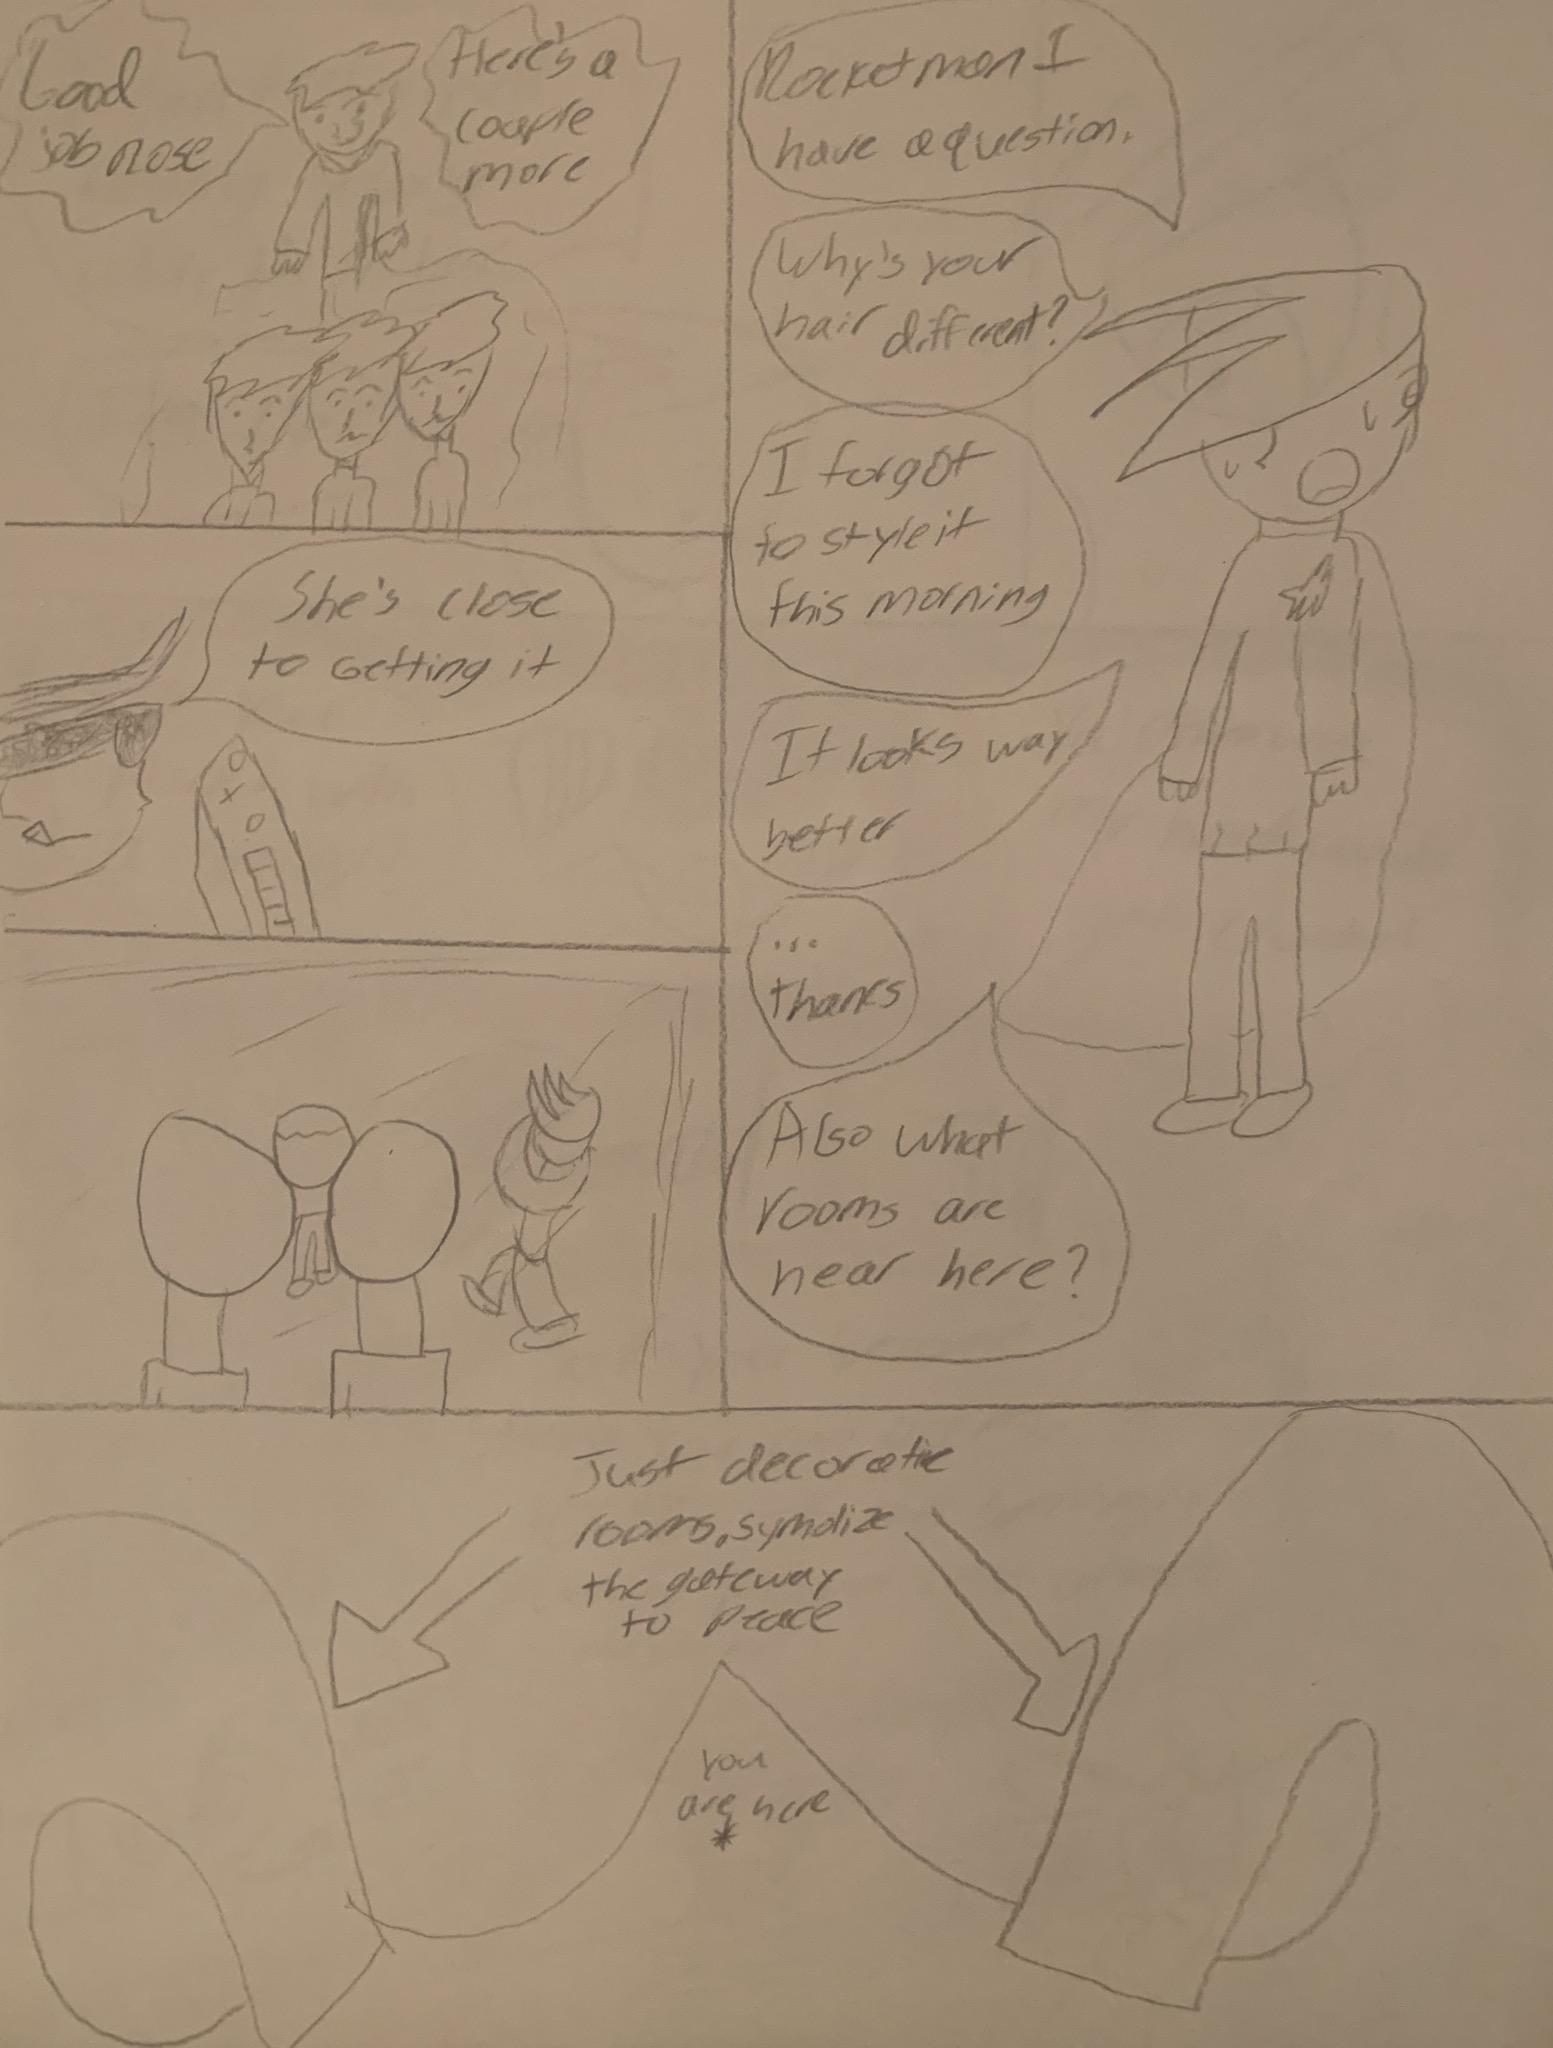 Good
job nose
Here's a
couple
more
She's close
to Getting it
Rocketman I
have a question.
Why's your
hair different?
I forgot
to style it
this morning
It looks way
better
...
thanks
Also what
rooms are
near here?
Just decorative
rooms, symolize
the gateway
to peace
you
are here
*